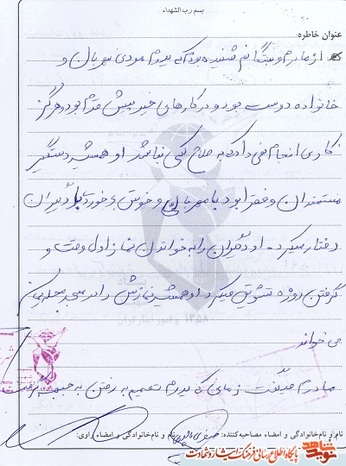 بسم رب الشهداء
عنوان خاطره:
از مادرم و بستگانم شنیده بودم که پدرم مردی مهربان و
خانواده دوست بود و در کارهای خیر پیش قدم بود و هرگز
کاری انجام نمی داد که به صلاح کسی نباشد او همیشه دستگیر
مستمندان و فقرا بود با مهربانی و خوش برخورد با دیگران
رفتار میکرد. او دیگران را به خواندن نماز اول وقت و
گرفتن روزه تشویق میکرد او همیشه نمازش را در مسجد
می خواند
مادرم میگفت زمانی که پدرم تصمیم به رفتن به جبهه گرفت
نام و نام‌خانوادگی و امضاء مصاحبه‌کننده: نام و نام‌خانوادگی و امضاء راوی:
نوید شاهد
پایگاه اطلاع رسانی فرهنگ ایثار و شهادت